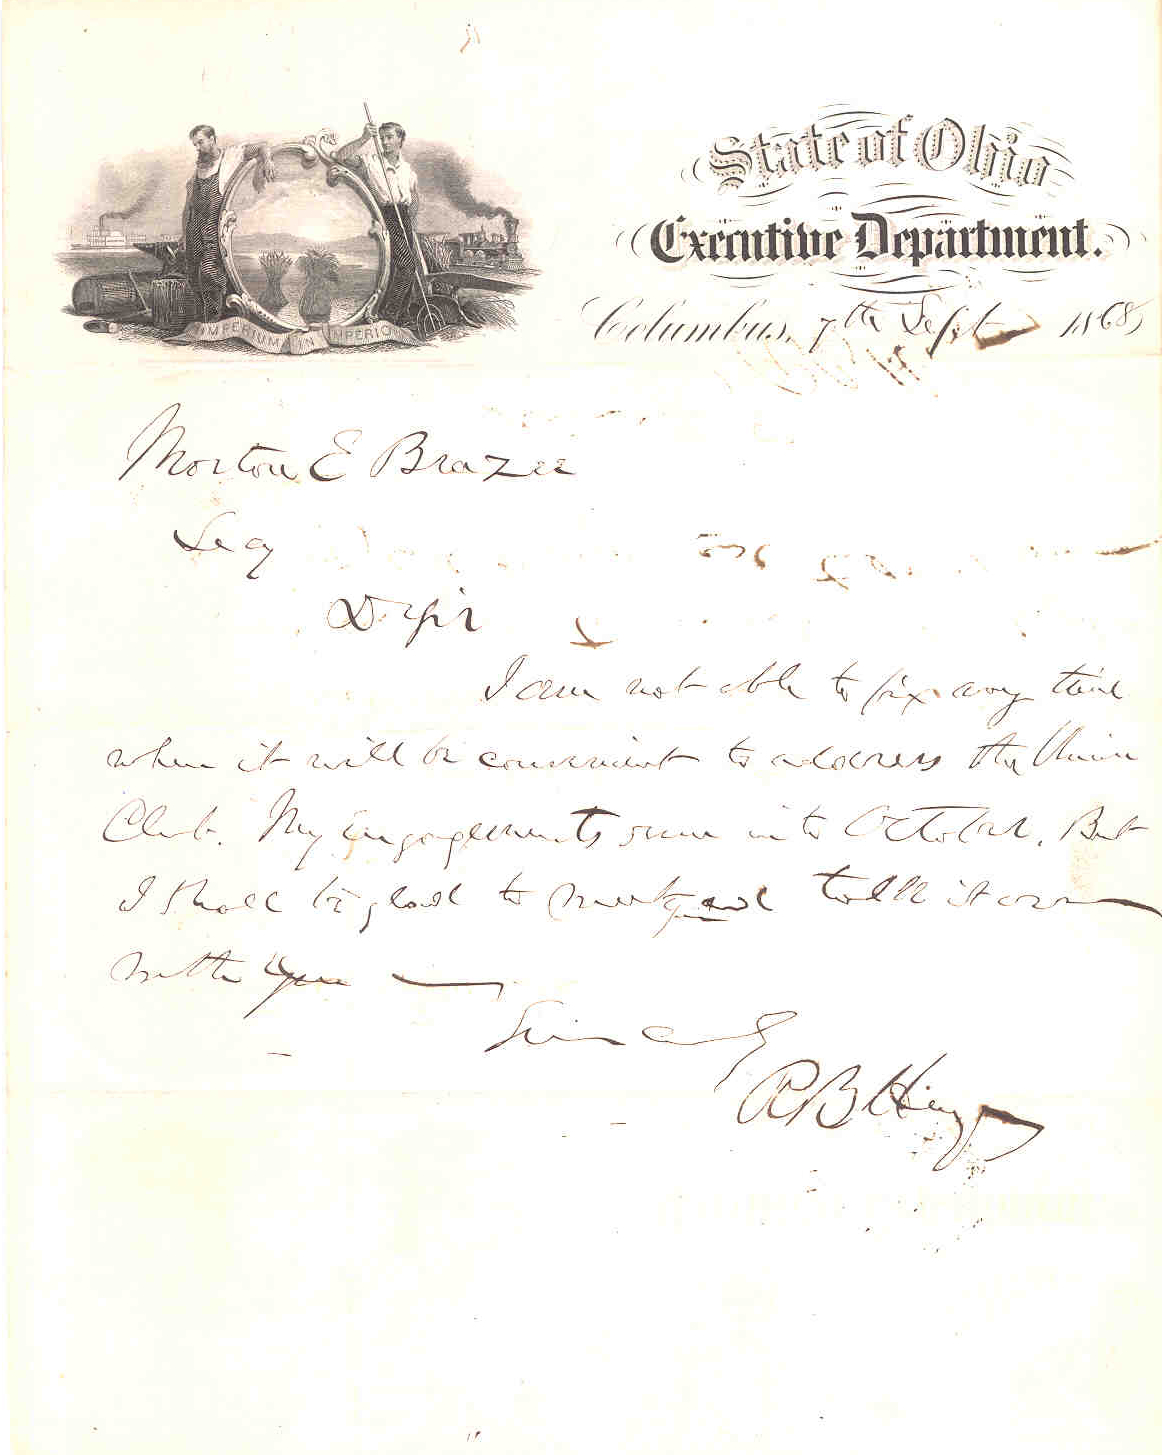 State of Ohio
Executive Department.
IMPERIUM IN IMPERIO
Columbus, 7th Sept 1868
Morton E Brazee
Secy
D Sir
I am not able to fix any time
when it will be convenient to address the Union
Club. My Engagements run into October. But
I shall be glad to meet and talk it over
with you —
Sincerely
R B Hayes